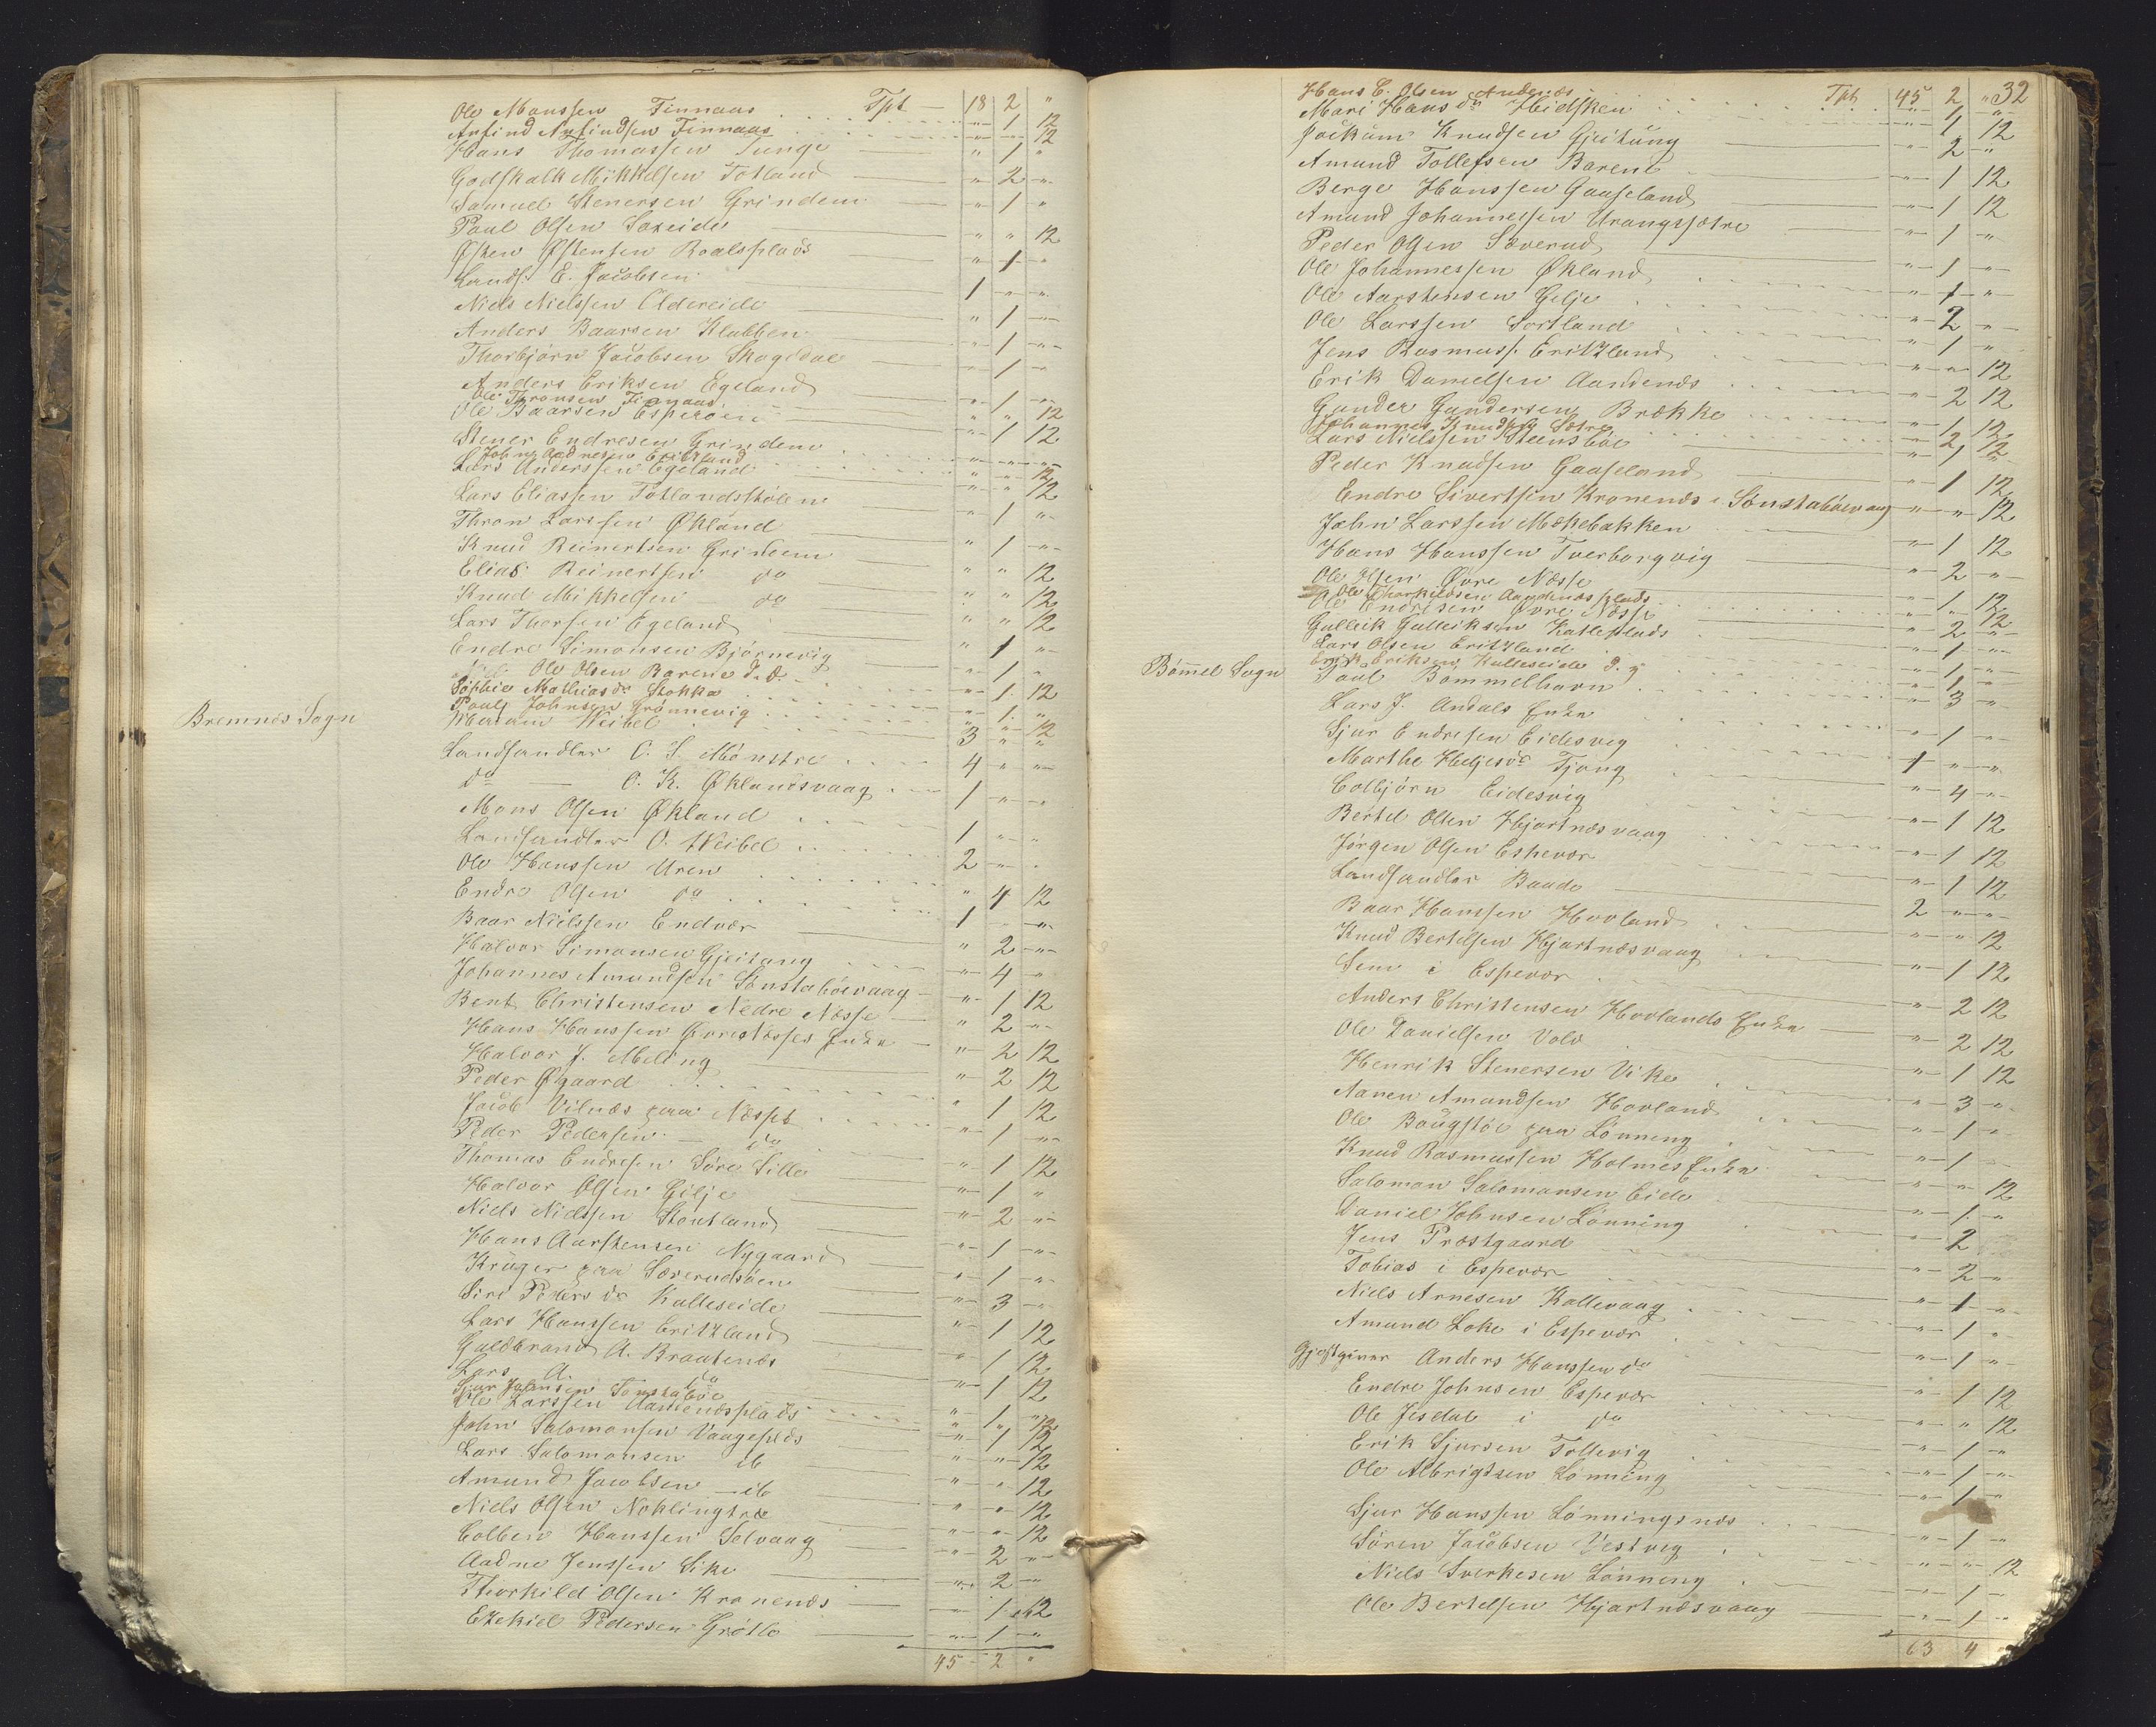 Ole Monssen Finnaas Tpt 18 2 "
Anfind Anfindsen Finnaas " 1 12
Hans Thomassen Tunge " " 12
Godskalk Mikkelsen Totland " 1 "
Samuel Stenersen Grindem " 2 "
Poul Olsen Soreide " 1 "
Østen Østensen Roalsplads " " 12
Landh. E. Jacobsen " 1 "
Niels Nielsen Oldereide 1 " "
Anders Baarsen Klubben " 1 "
Thorbjørn Jacobsen Skogedal " 1 "
Anders Eriksen Egeland " 1 "
Ole Thronsen Finnaas " 1 "
Ole Baarsen Esperøen " " 12
Stener Endresen Grindem " 1 12
John Andresen Eritzland " " "
Lars Anderssen Egeland " " 12
Lars Eliassen Totlandsstølen " " 12
Thron Larssen Økland " 1 "
Knud Reinertsen Grindem " 1 "
Elias Reinertsen do " " 12
Knud Mikkelsen do " " 12
Lars Thorsen Egeland " " 12
Endre Simonsen Bjørnevig " 1 "
Ole Olsen Barene d. d. " 1 "
Sophie Mathiasdr Stokka " 1 12
Poul Johnsen Grønnevig " 1 "
Bremnæs Sogn
Weibel " " 12
Landhandler O. S. Mønstre 3 " "
do O. K. Øklandsvaag 4 " "
Mons Olsen Økland 1 " "
Landhandler O. Weibel 1 " "
Ole Hanssen Uren 2 " "
Endre Olsen do " 4 12
Baar Nielssen Endvær 1 " "
Halvor Simonsen Gjeitung " 2 "
Johannes Amundsen Sønstabøevaag " 4 "
Bent Christensen Nedre Næsse " 1 12
Hans Hanssen Øvre Næsses Enke " 2 "
Halvor J. Meling " 2 12
Peder Øgaard " 2 12
Jacob Vilnæs paa Næsset " 1 12
Peder Pedersen do " 1 "
Thomas Endresen Søre Sille " 1 12
Halvor Olsen Gilje " 1 "
Niels Nielssen Stoutland " 2 "
Hans Aarstensen Nygaard " 1 "
Krüger paa Sæverudsøen " 1 "
Siri Pedersdr Kulleseide " 3 "
Lars Hanssen Eritzland " 1 12
Guldbrand A. Braatenæs " 1 12
Lars A. do " 1 12
Sjur Johnsen Sønstabøe " 1 "
Ole Larssen Aandenæsplads " " 12
John Salomonsen Vaageplds " 1 12
Lars Salomonsen ib " " 12
Amund Jacobsen ib " " 12
Niels Olsen Noklingtræ " " 12
Colben Hanssen Selvaag " " 12
Aadne Jenssen Sike " 2 "
Thorkild Olsen Kronenæs " 2 "
Ezekiel Pedersen Grøtle " 1 12
" 1 "
45 2 "
32
Hans E. Olsen Andenæs Tpt 45 2 "
Mari Hansdr Hidsken " 1 "
Joakum Knudsen Gjeitung " 1 12
Amund Tollefsen Barene " 2 "
Berge Hanssen Gaaseland " 1 12
Amund Johannessen Urangssætre " 1 12
Peder Olsen Sæverud " 1 "
Ole Johannessen Økland " 1 "
Ole Aarstensen Gilje " 1 "
Ole Larssen Sortland " 2 "
Jens Rasmuss. Eritzland " 1 "
Erik Danielsen Aandenæs " " 12
Gunder Gundersen Brække " 2 12
Johannes Knudsen Sætre " 1 12
Lars Nielssen Steensbøe " 2 12
Peder Knudsen Gaaseland " 1 "
Endre Sivertsen Kronenæs i Sønstabøevaag " 1 12
John Larssen Mækebakken " " 12
Hans Hanssen Tverborgvig " 1 12
Ole Olsen Øvre Næsse " 2 "
Ole Thorkildsen Aandenæsplads
Ole Endresen Øvre Næsse " 1 12
Gullik Gulleiksen Katleplads " " 12
Lars Olsen Eritzland " 2 "
Erik Eriksen Kulleseide d. y. " 1 "
Bømmel Sogn
Poul Bommelhavn " 1 "
Lars J. Andals Enke " 3 "
Sjur Endresen Eidesvig " 1 "
Marthe Helgesdr Tjong 1 " "
Colbjørn Eidesvig " 4 "
Bertel Olsen Hjartnæsvaag " 1 12
Jørgen Olsen Espevær " 1 12
Landhandler Baade " 1 12
Baar Hanssen Hovland 2 " "
Knud Bertelsen Hjartnæsvaag " " 12
Sem i Espevær " 1 12
Anders Christensen Hovlands Enke " 2 12
Ole Danielsen Vold " 2 12
Henrik Stenersen Vike " 1 12
Aanen Amundsen Hovland " 3 "
Ole Baugstøe paa Lønning " 1 "
Knud Rasmussen Holmes Enke " 1 "
Salomon Salomonsen Eide " " 12
Daniel Johnsen Lønning " 1 "
Jens Præstgaard " 2
Tobias i Espevær " 2 "
Niels Arnesen Kallevaag " 1 "
Amund Loke i Espevær " 1 "
Gjestgiver Anders Hanssen do " 1 "
Endre Johnsen Espevær " 1 12
Ole Jesdal i do " " 12
Erik Sjursen Tollevig " 1 "
Ole Albrigtsen Lønning " 1 "
" 1 "
Sjur Hanssen Lønningsnæs
Søren Jacobsen Vestvig " 1 "
Niels Sverkesen Lønning " " 12
Ole Bertelsen Hjartnæsvaag " 1 "
" 1 "
63 4